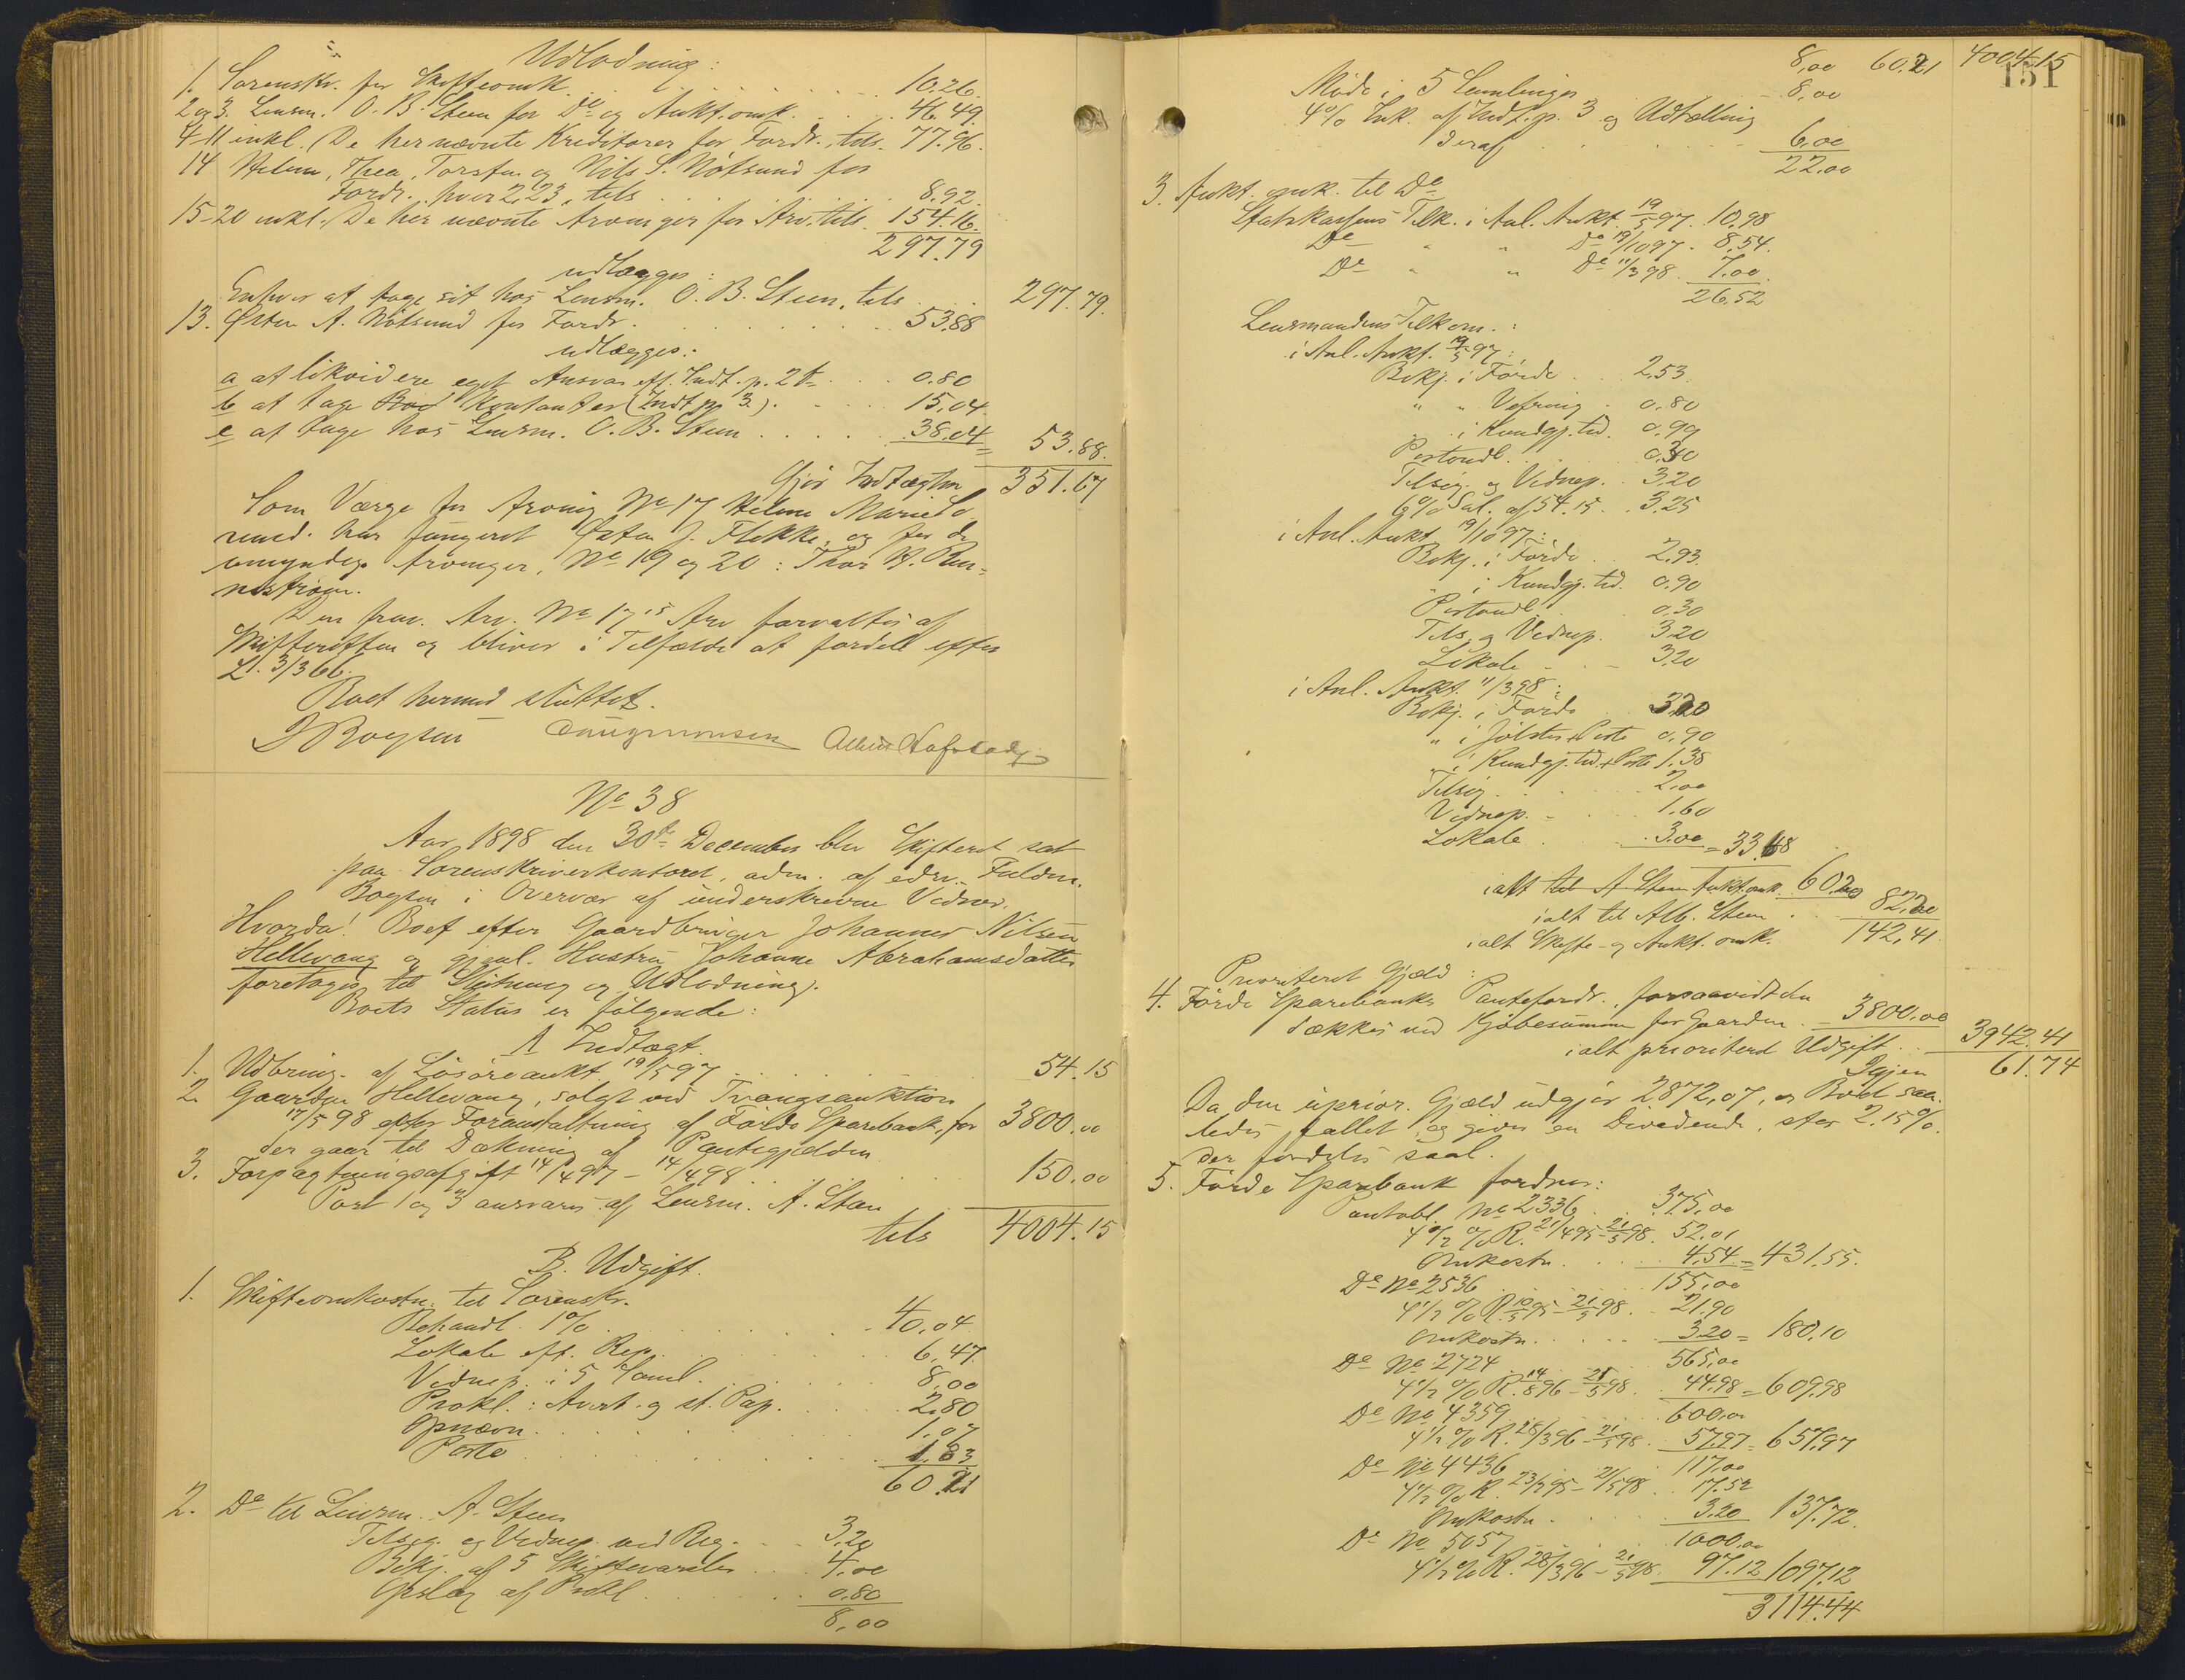 Udlodning:
1. Sorenskr. for Skifteomk. 10.26.
2 og 3. Lensm. O. B. Steen for Do og Aukt.omk. 46.49.
4-11 inkl. De her nævnte Kreditorer for Fordr., tils. 77.96.
14 Helene, Thea, Torsten og Nils S. Nötsund for
Fordr., hver 2,23, tils 8.92.
15-20 inkl. De her nævnte Arvinger for Arv, tils. 154.16.
297.79
udlægges:
Enhver at tage sit hos Lensm. O. B. Steen, tils 297.79.
13. Østen A. Nötsund for Fordr. 53.88
udlægges:
a at likvidere eget Ansvar eff. Indt. p. 2 0.80
b at tage Kontanter (Indt. p. 3.) 15.04
c at tage hos Lensm. O. B. Steen 38.04 = 53.88.
Gjör Indtægten 351.67
Som Værge for Arving No 17 Helene Marie
har fungeret Østen J. Flekke, og for de
umyndige Arvinger, No 19 og 20: Thor H.
Den frav. Arv. No 17's Arv forvaltes af
Skifteretten og bliver i Tilfælde at fordele efter
L. 3/3 66.
Boet hermed sluttet.
Boysen
No 38
Aar 1898 den 30te December blev Skifteret sat
paa Sorenskriverkontoret, adm. af edsv. Fuldm.
Boysen i Overvær af underskrevne Vidner.
Hvorda! Boet efter Gaardbruger Johannes Nilsen
Hellevang og gjenl. Hustru Johanne Abrahamsdatter
foretoges til Slutning og Udlodning.
Boets Status er fölgende:
A Indtægt.
1. Udbring. af Lösöreaukt. 19/5 97 54.15
2. Gaarden Hellevang, solgt ved Tvangsauktion
17/5 98 efter Foranstaltning af Förde Sparebank, for 3800.00
der gaar til Dækning af Pantegjælden
3. Forpagtningsafgift 14/4 97 - 14/4 98 150.00
Post 1 og 3 ansvares af Lensm. A. Steen
tils 4004.15
B. Udgift.
1. Skifteomkostn. til Sorenskr.
Behandl. 1% 40,04
Lokale eft. Rep. 6,47
Vidnep. i 5 Saml. 8,00
Prokl.: Avert. og st. Pap. 2,80
Opnævn. 1,07
Porto 1,83
60.21
2. Do til Lensm. A. Steen
Tilsig. og Vidnep. ved Reg. 3,20
Bekj. af 5 Skiftevarsler 4,00
Opslag af Prokl. 0,80
8,00
151
8,00 60.21 4004.15
Möde i 5 Samlinger 8,00
4% Ink. af Indt. p. 3 og Udtælling
deraf 6,00
22,00
3. Aukt. omk. til Do
Statskassens Tilk. i Anl. Aukt. 19/5 97. 10,98
Do " " Do 19/10 97. 8,54.
Do " " Do 11/3 98. 7.00.
26,52
Lensmandens Tilkom.:
i Anl. Aukt. 19/5 97:
Bekj. i Förde 2.53
" " Vefring 0.80
" i Kundgj. tid. 0.99
Portoudl. 0.30
Tilsig. og Vidnep. 3.20
6% Sal. af 54.15 3.25
i Anl. Aukt. 19/10 97:
Bekj. i Förde 2.93
" i Kundgj. tid. 0.90
Portoudl. 0.30
Tils. og Vidnep. 3.20
Lokale 3.20
i Anl. Aukt. 11/3 98:
Bekj. i Förde 3.20
" i Jölster + Porto 0.90
" i Kundgj. tid. + Porto 1.38
Tilsig. 2.00
Vidnep. 1.60
Lokale 3.00 = 33.68
ialt til A. Steen Aukt. omk. 60.20
ialt til Alb. Steen 82.20
ialt Skifte- og Aukt. omk. 142,41
Prioriteret Gjæld:
4. Förde Sparebanks Pantefordr., forsaavidt den
dækkes ved Kjöbesummen for Gaarden 3800,00
ialt prioriteret Udgift 3942.41
Igjen 61.74
Da den uprior. Gjæld udgjör 2872,07, er Boet saa-
ledes fallet, og gives en Dividende, stor 2.15%.
der fordeles saal.
5. Förde Sparebank fordrer:
Pantobl. No 2336 375,00
4 1/2 % R. 21/4 95 - 21/5 98. 52.01
Omkostn. 4.54 = 431.55.
Do No 2536 155,00
4 1/2 % R. 10/5 95 - 21/5 98. 21.90
Omkostn. 3.20 = 180.10
Do No 2724 565,00
4 1/2 % R. 14/8 96 - 21/5 98. 44.98 = 609.98
Do No 4359 600,00
4 1/2 % R. 28/3 96 - 21/5 98. 57.97 = 657.97
Do No 4436 117,00
4 1/2 % R. 23/1 95 - 21/5 98 17.52
Omkostn. 3.20 137.72.
Do No 5057 1000,00
4 1/2 % R. 28/3 96 - 21/5 98. 97.12 1097.12
3114.44